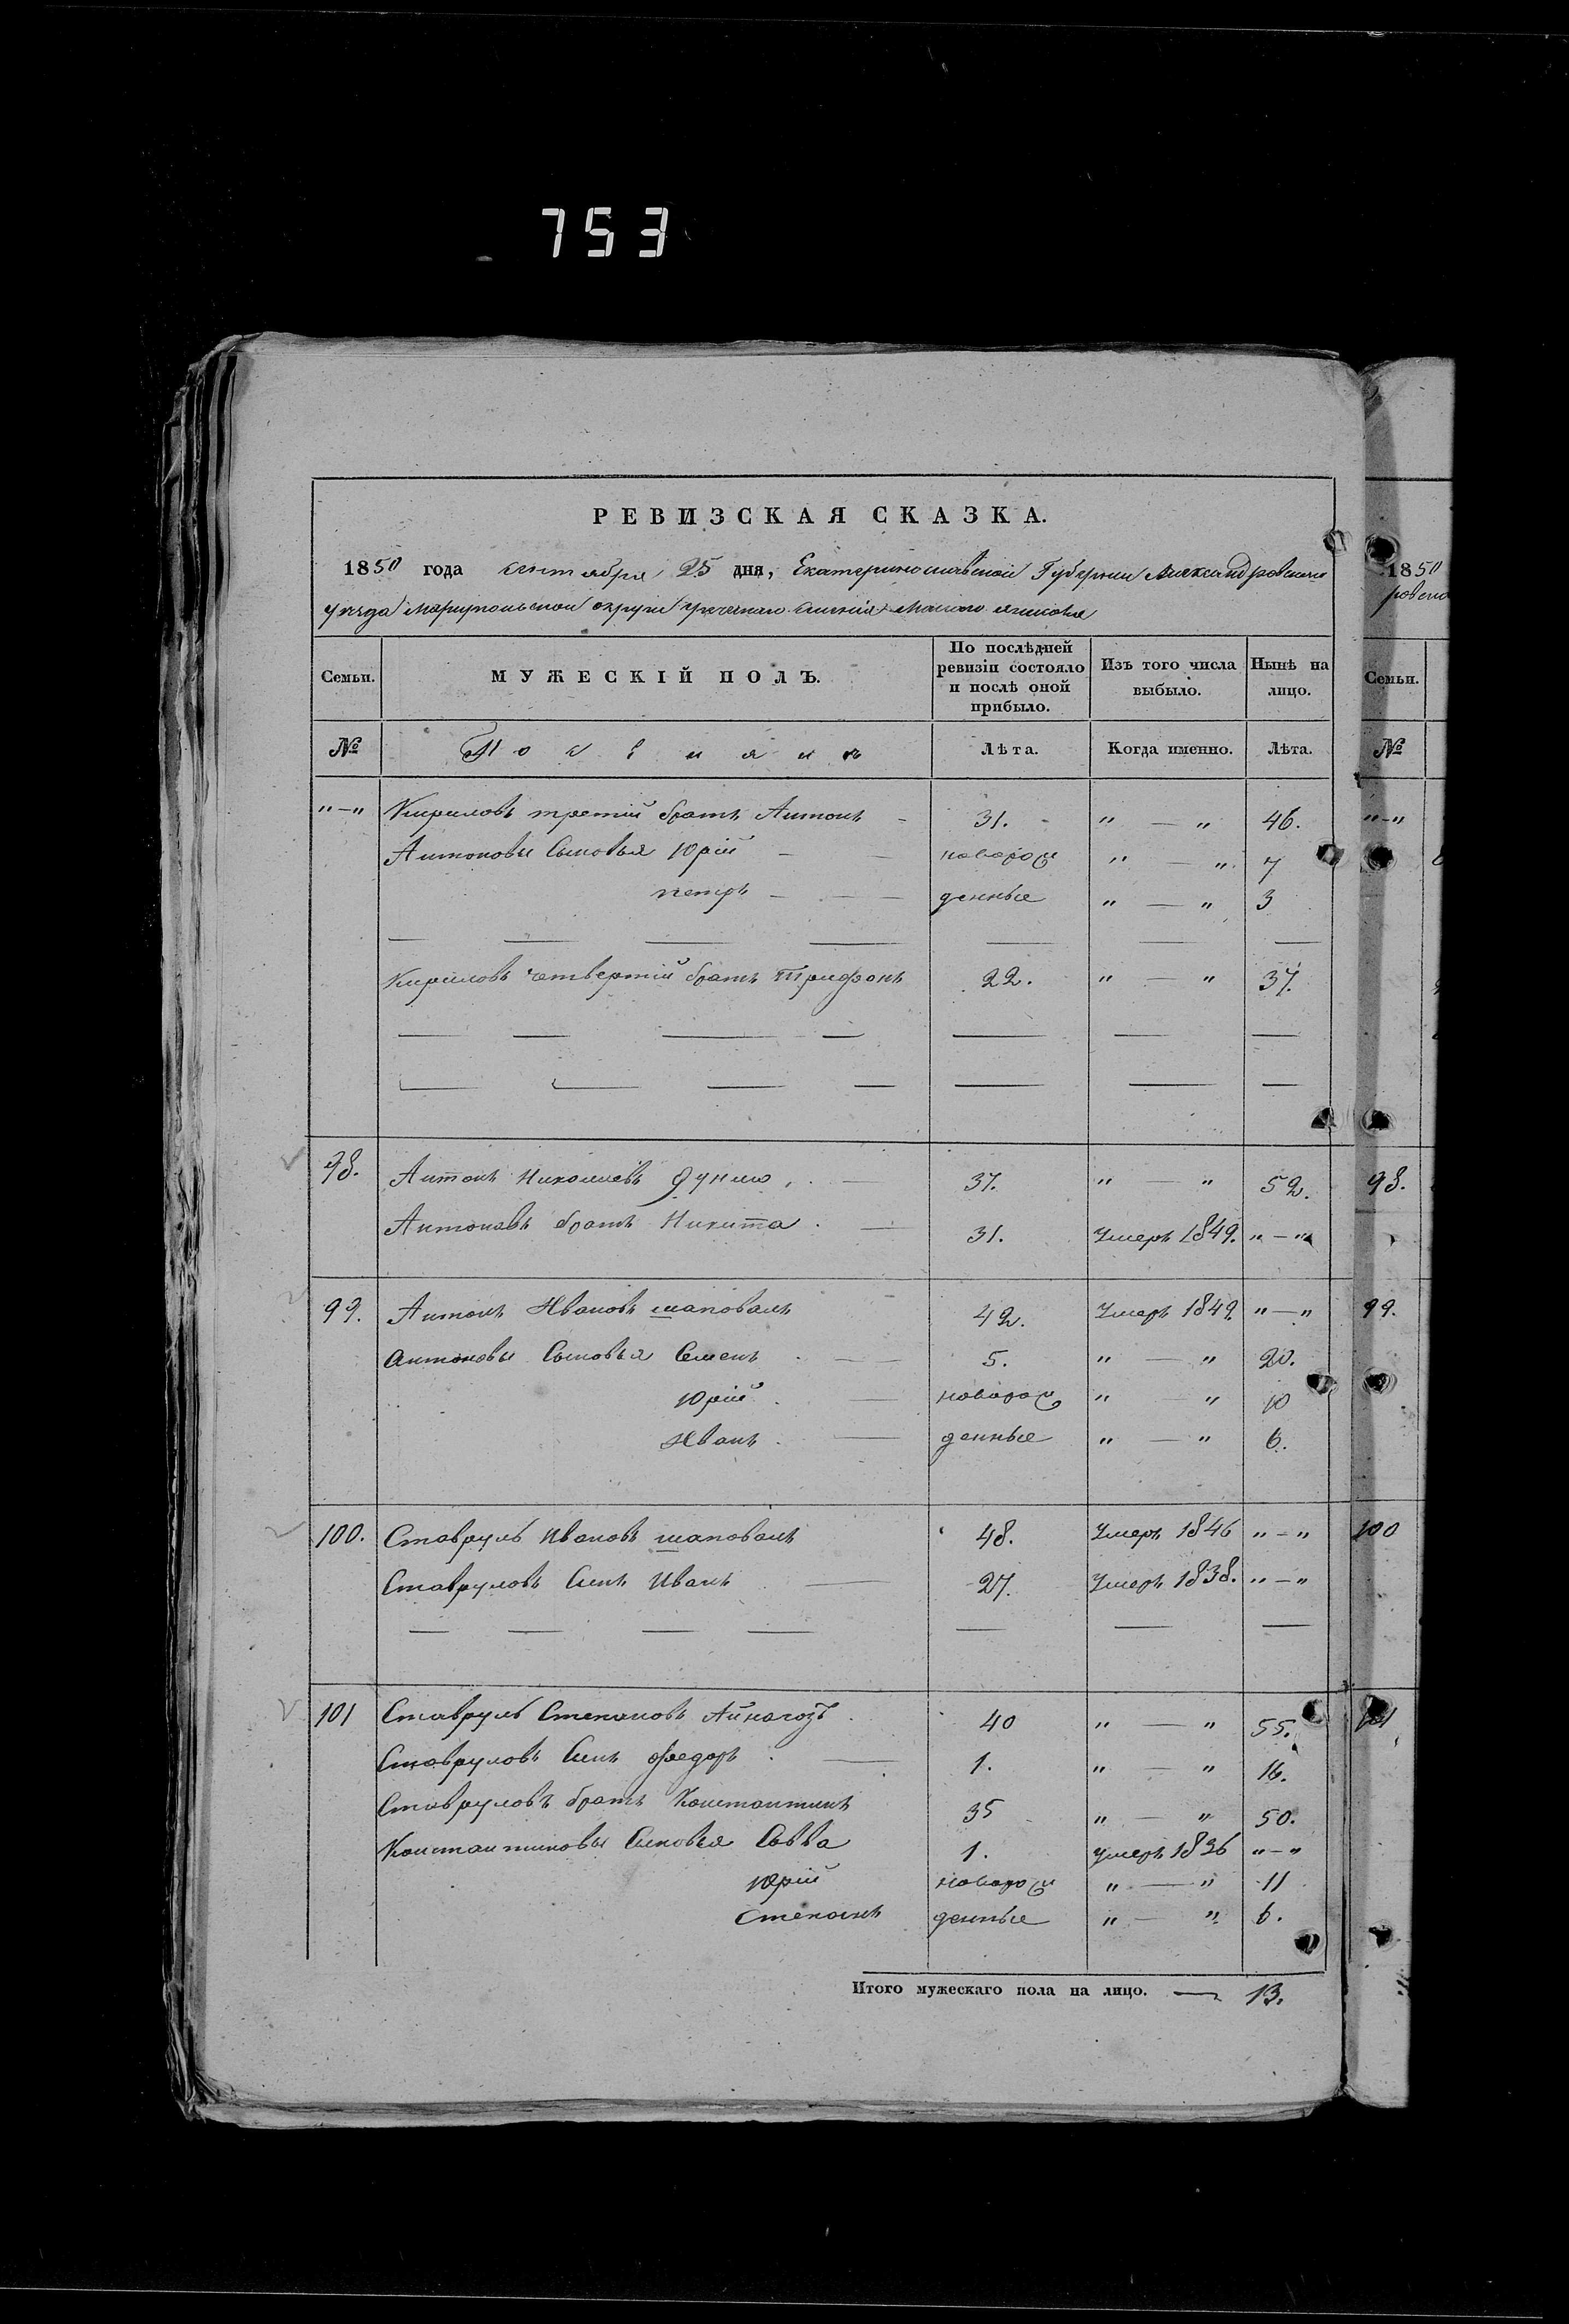 753
РЕВИЗСКАЯ СКАЗКА.
1850 года сентября 25 дня, Екатеринославской Губернии Александровскаго
уезда Мариупольской округи греческаго селения Малого янисоля
Семьи. МУЖЕСКІЙ ПОЛЪ. По послѣдней ревизіи состояло и послѣ оной прибыло. Изъ того числа выбыло. Нынѣ на лицо.
№ Поселянъ Лѣта. Когда именно. Лѣта.
"—" Кириловъ третій братъ Антонъ — 31. " — " 46.
Антоновы Сыновья Юрій — — новорож " — " 7
петръ — — — денные " — " 3
Кириловъ четвертій братъ Трифонъ 22. " — " 37.
98. Антонъ Николаевъ — 37. " — " 52.
Антоновъ братъ Никита. — 31. Умеръ 1849. "—"
99. Антонъ Ивановъ шаповалъ 42. Умеръ 1849. "—"
Антоновы Сыновья Семенъ — 5. " — " 20.
Юрій. — новорож " — " 10
Иванъ. — денные " — " 6.
100. Ставруль Ивановъ шаповалъ 48. Умеръ 1846 "—"
Ставруловъ Сынъ Иванъ — 27. Умеръ 1838. "—"
101 Ставруль Степановъ 40 " — " 55.
Ставруловъ Сынъ Федоръ. — 1. " — " 16.
Ставруловъ братъ Константинъ 35 " — " 50.
Константиновы Сыновья Савва 1. умеръ 1836 "—"
Юрій новорож " — " 11
Степанъ денные " — " 6.
Итого мужескаго пола на лицо. — 13.
1850
Семьи.
№
"—"
98.
99.
100
101